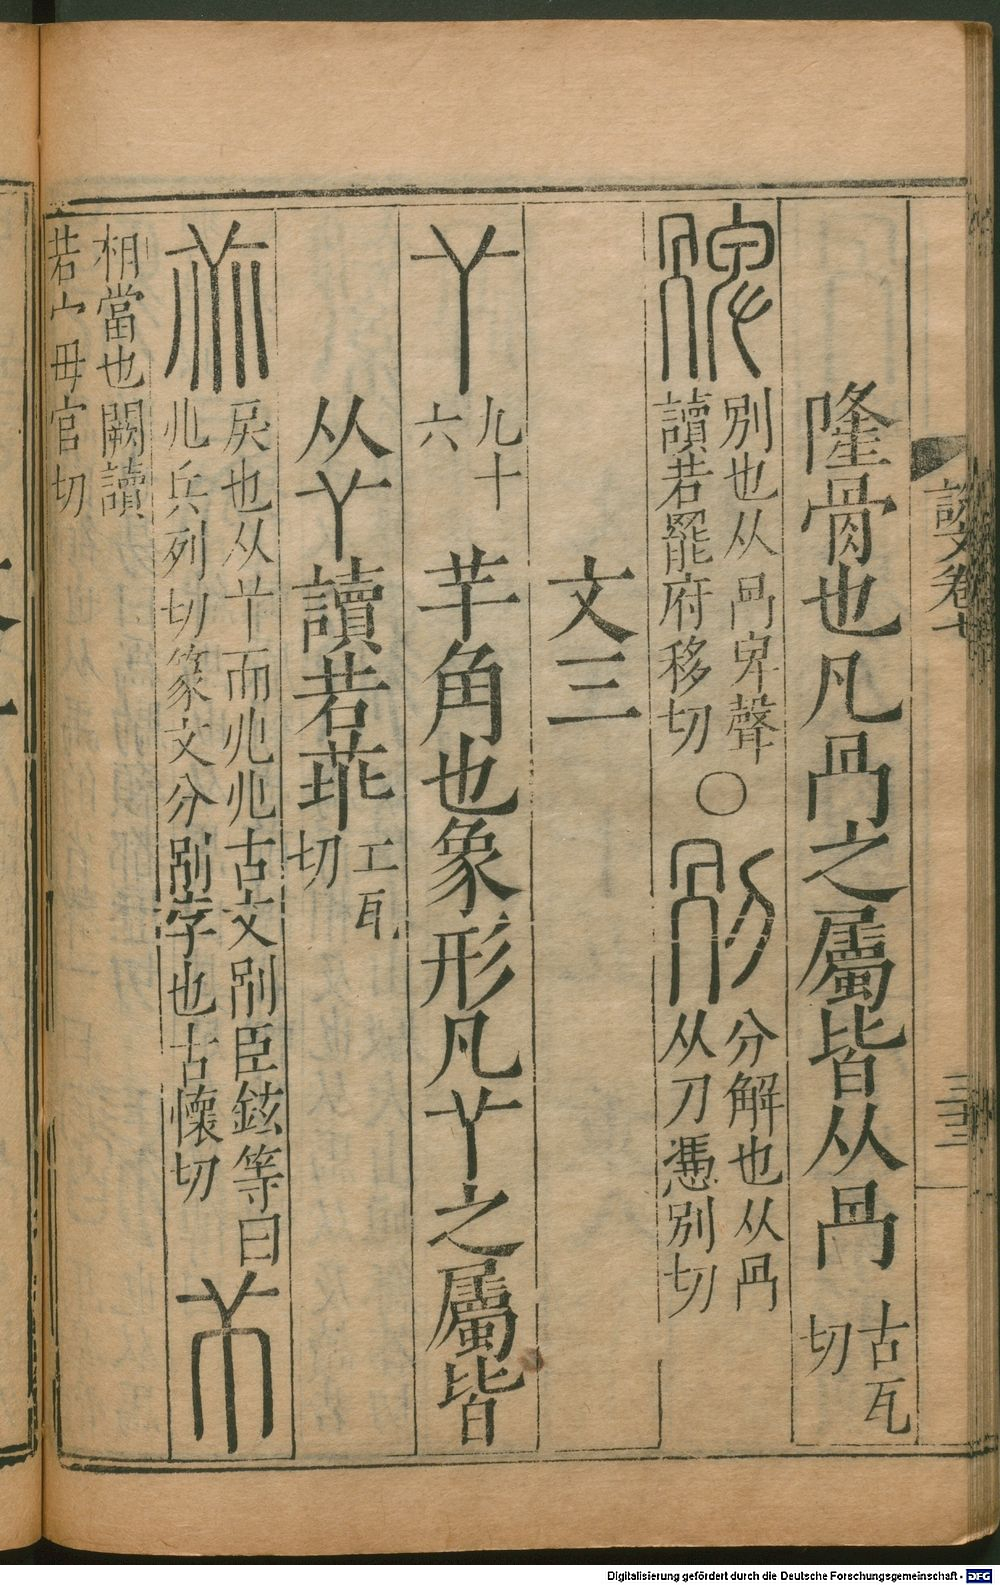 隆骨也凡冎之屬皆从冎 古瓦切
𩨨 別也从冎卑聲讀若罷府移切 〇 𠛰 分解也从冎从刀憑別切
文三
𦫳 九十六 芊角也象形凡𦫳之屬皆
从𦫳讀若菲 工瓦切
𠔁 戾也从𦫳而兆兆古文別臣鉉等曰兆兵列切篆文分別字也古懷切 𦬆
相當也闕讀若宀毌官切
說文卷七
三十三
Digitalisierung gefördert durch die Deutsche Forschungsgemeinschaft - DFG